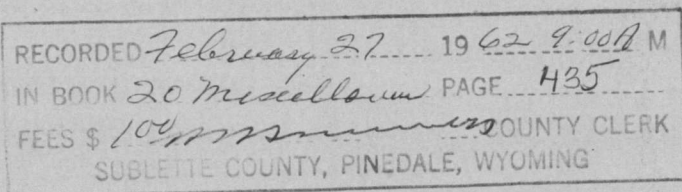 RECORDED February 27 1962 9:00 A M
IN BOOK 20 Miscellaneous PAGE 435
FEES $ 1.00 COUNTY CLERK
SUBLETTE COUNTY, PINEDALE, WYOMING